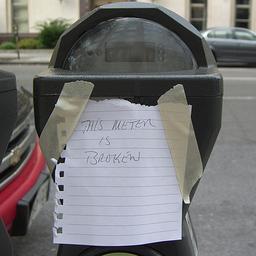 THIS METER
IS
BROKEN